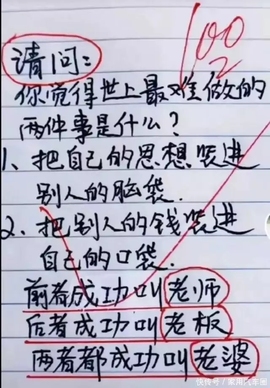 100
请问:
你觉得世上最难做的
两件事是什么?
1、把自己的思想装进
别人的脑袋.
2、把别人的钱装进
自己的口袋.
前者成功叫老师
后者成功叫老板
两者都成功叫老婆